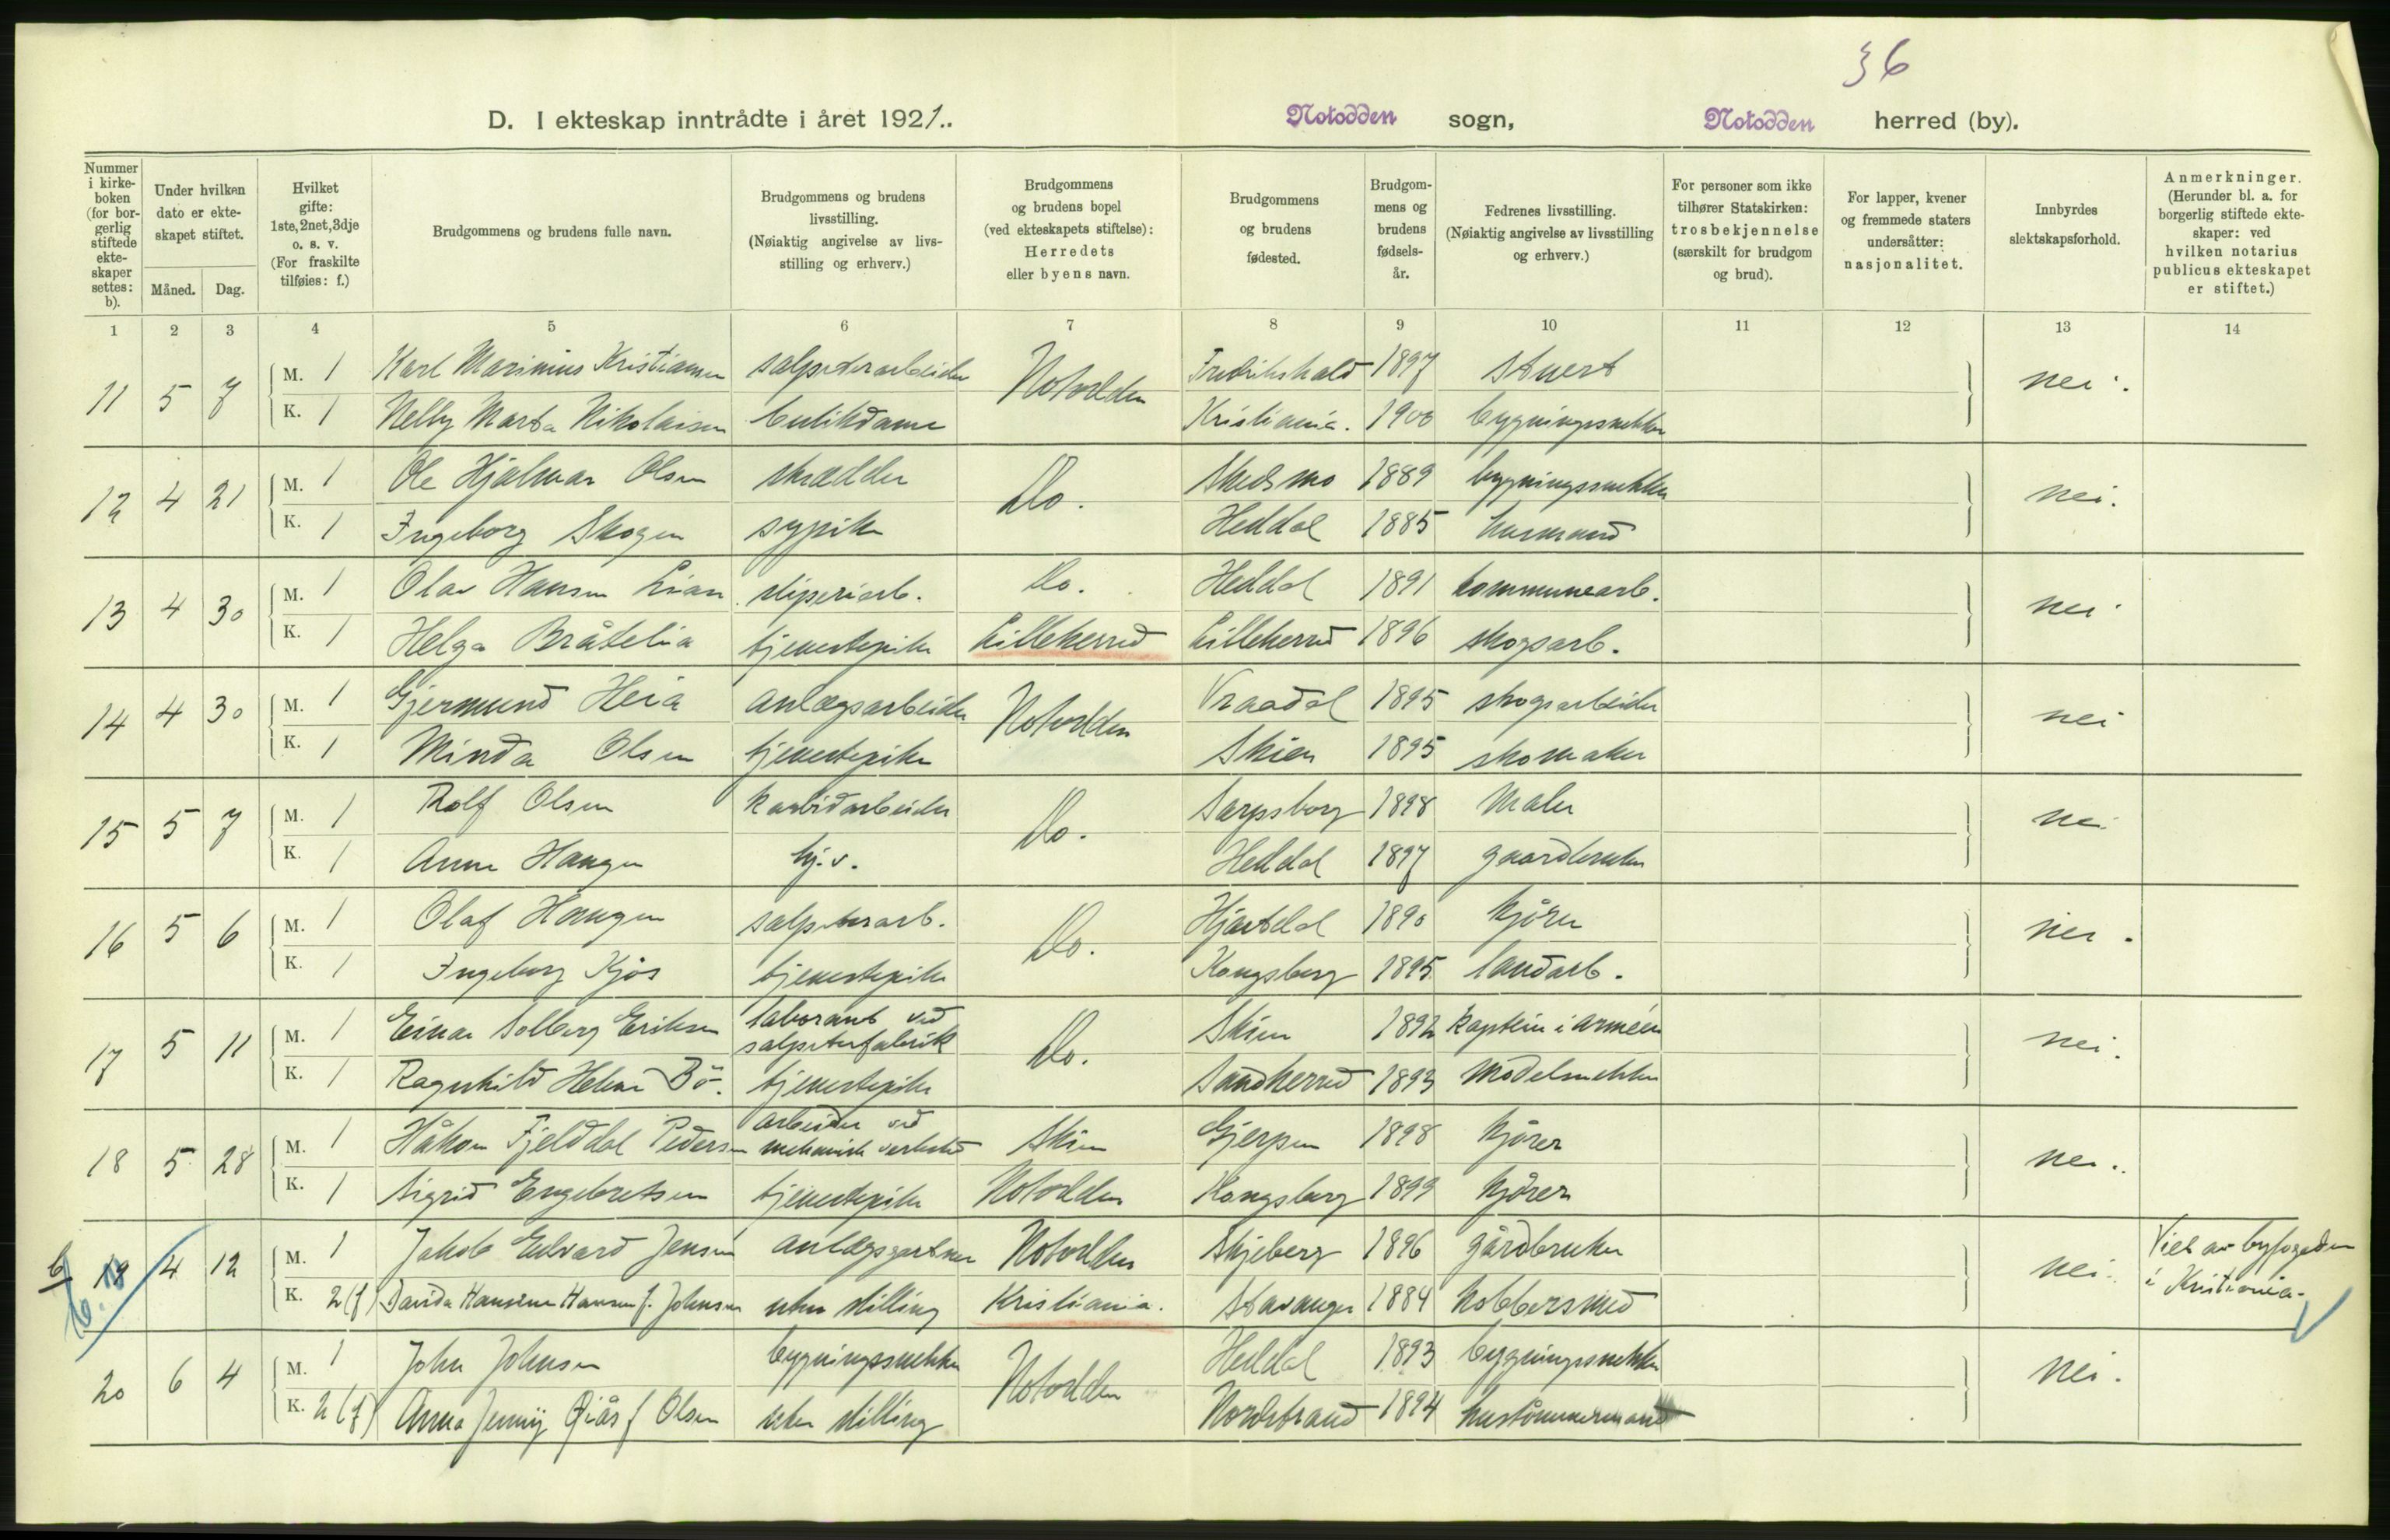 36
D. I ekteskap inntrådte i året 1921.. Notodden sogn, Notodden herred (by).
Nummer i kirke-boken (for bor-gerlig stiftede ekte-skaper settes: b).
Under hvilken dato er ekte-skapet stiftet.
Måned. Dag.
Hvilket gifte: 1ste, 2net, 3dje o. s. v. (For fraskilte tilføies: f.)
Brudgommens og brudens fulle navn.
Brudgommens og brudens livsstilling. (Nøiaktig angivelse av livs-stilling og erhverv.)
Brudgommens og brudens bopel (ved ekteskapets stiftelse): Herredets eller byens navn.
Brudgommens og brudens fødested.
Brudgom-mens og brudens fødsels-år.
Fedrenes livsstilling. (Nøiaktig angivelse av livsstilling og erhverv.)
For personer som ikke tilhører Statskirken: trosbekjennelse (særskilt for brudgom og brud).
For lapper, kvener og fremmede staters undersåtter: nasjonalitet.
Innbyrdes slektskapsforhold.
Anmerkninger. (Herunder bl. a. for borgerlig stiftede ekte-skaper: ved hvilken notarius publicus ekteskapet er stiftet.)
1 2 3 4 5 6 7 8 9 10 11 12 13 14
11 5 7 M. 1 Karl Marinius Kristiansen salpeterarbeider Notodden Fredrikshald 1897 stuert nei.
K. 1 Nelly Marta Nikolaisen butikdame Kristiania. 1900 bygningssnekker
12 4 21 M. 1 Ole Hjalmar Olsen skrædder Do. Skedsmo 1889 bygningssnekker nei.
K. 1 Ingeborg Skogen sypike Heddal 1885 husmand
13 4 30 M. 1 Olav Hansen Lian sliperiarb. Do. Heddal 1891 kommunearb. nei
K. 1 Helga Bråtelia tjenestepike Lilleherred Lilleherred 1896 skogsarb.
14 4 30 M. 1 Gjermund Heia anlægsarbeider Notodden Vraadal 1895 skogsarbeider nei
K. 1 Minda Olsen tjenestepike Skien 1895 skomaker
15 5 7 M. 1 Rolf Olsen karbidarbeider Do. Sarpsborg 1898 maler nei
K. 1 Anne Haugen hj.v. Heddal 1897 gaardbruker
16 5 6 M. 1 Olaf Haugen salpeterarb. Do. Hjartdal 1890 kjører nei.
K. 1 Ingeborg Kjøs tjenestepike Kongsberg 1895 landarb.
17 5 11 M. 1 Einar Solberg Eriksen laborant ved salpeterfabrik Do. Skien 1892 kaptein i arméen nei.
K. 1 Ragnhild Helene Bö. tjenestepike Sandherred 1893 modelsnekker
18 5 28 M. 1 Håkon Fjelddal Pedersen arbeider ved mekanisk verksted Skien Gjerpen 1898 kjører nei.
K. 1 Sigrid Engebretsen tjenestepike Notodden Kongsberg 1899 kjører
b 19 4 12 M. 1 Jakob Edvard Jensen anlægsgartner Notodden Skjeberg 1896 gårdbruker nei. Viet av byfogeden i Kristiania.
K. 2(f) Davida Hansine Hansen f. Johnsen uten stilling Kristiania. Stavanger 1884 kobbersmed
20 6 4 M. 1 John Johnsen bygningssnekker Notodden Heddal 1893 bygningssnekker nei.
K. 2(f) Anna Jenny f Olsen uten stilling Nordstrand 1894 hustömmermand